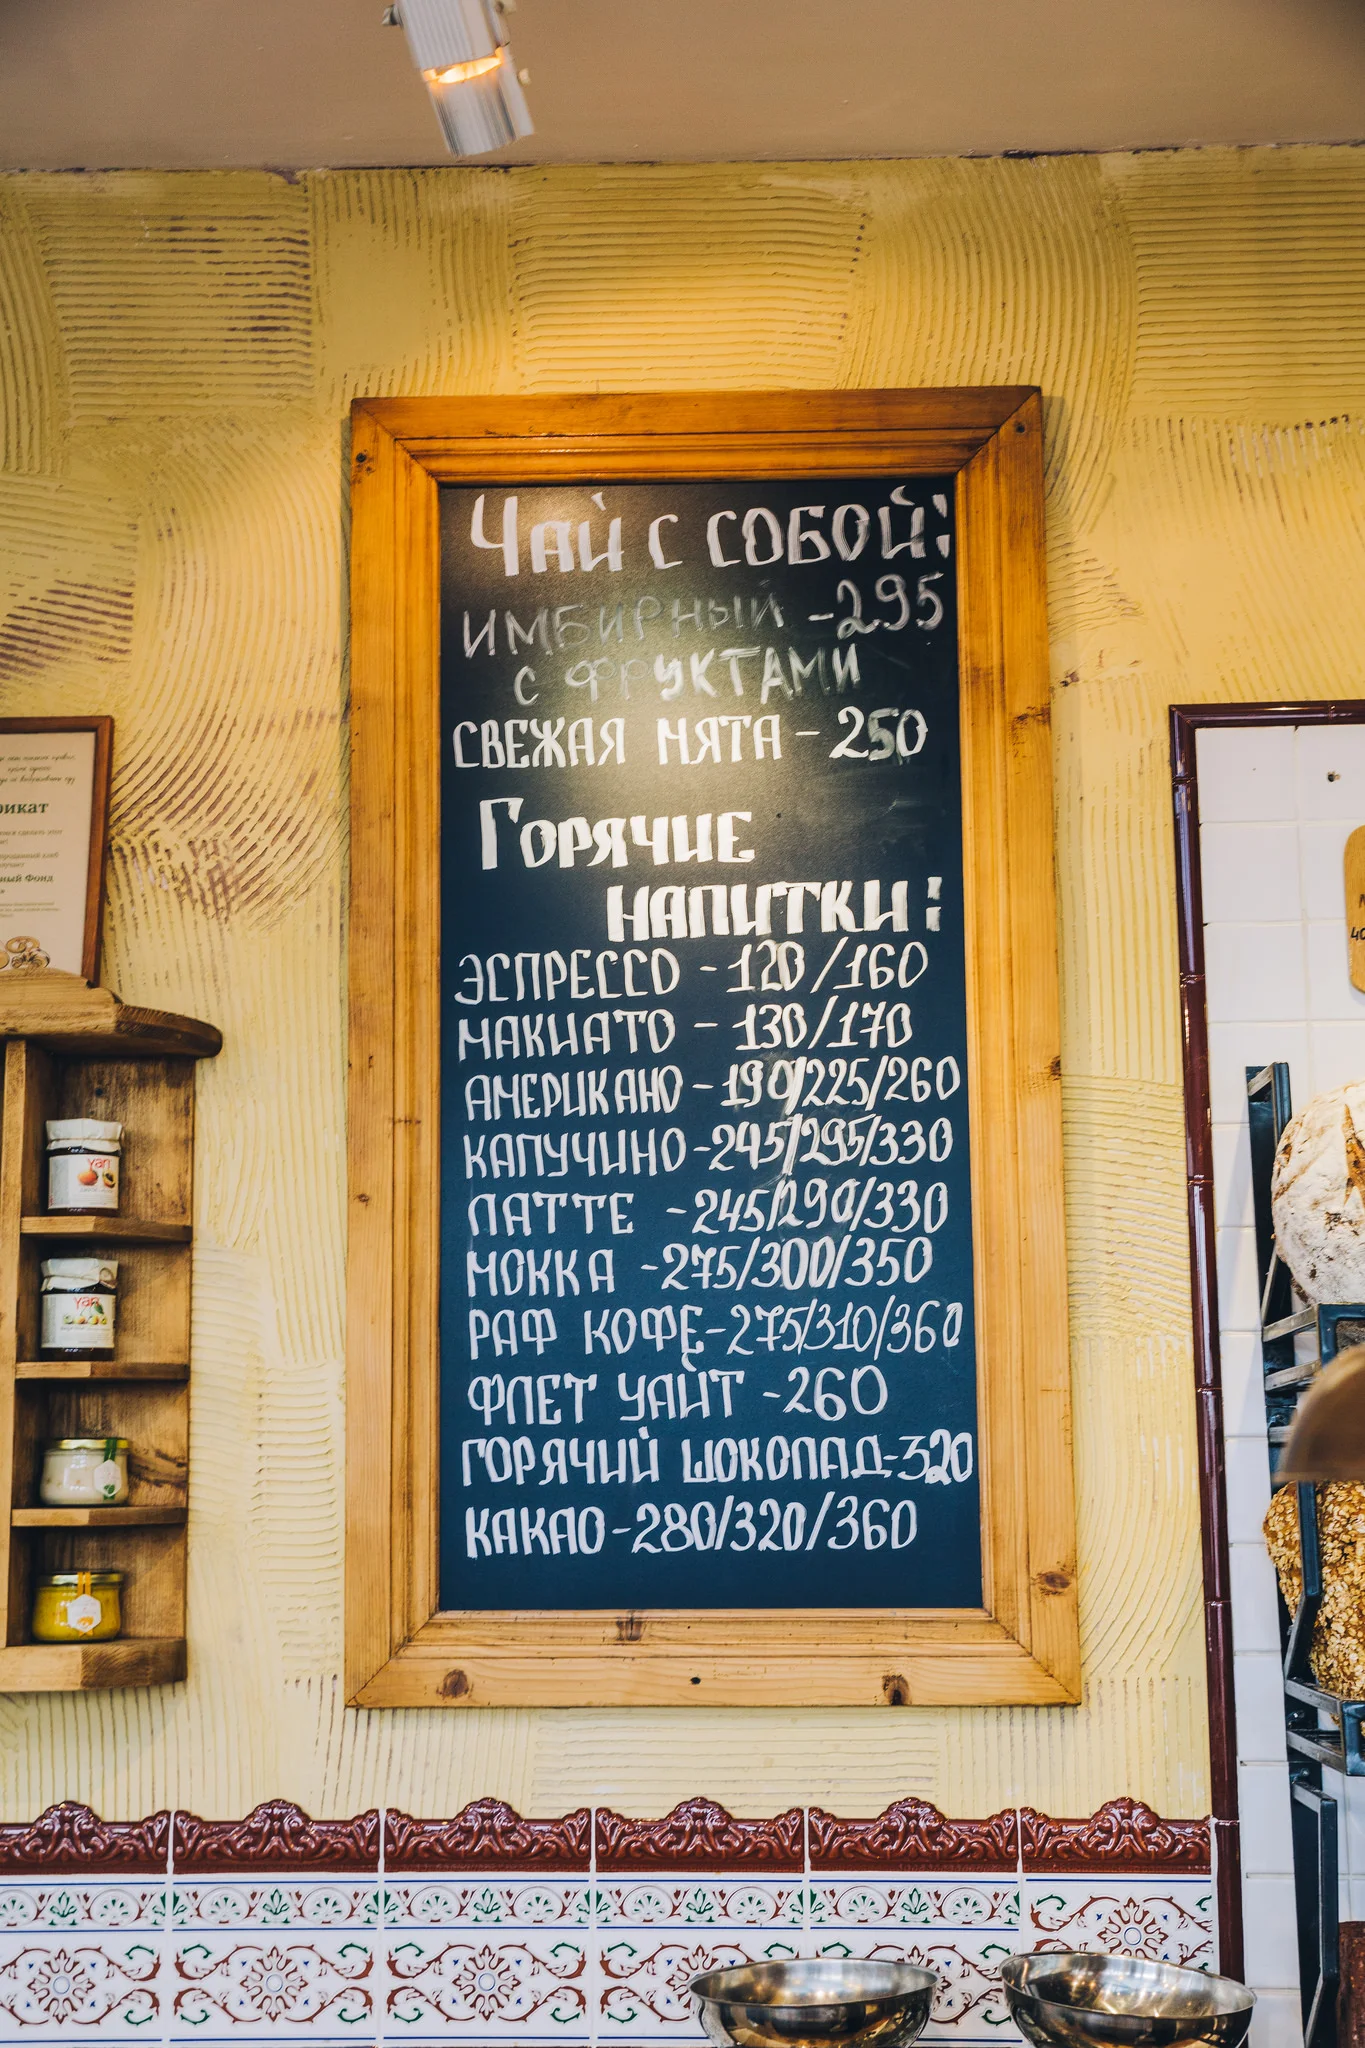 Чай с собой:
ИМБИРНЫЙ -295
С ФРУКТАМИ
СВЕЖАЯ МЯТА - 250
Горячие
напитки:
ЭСПРЕССО - 120/160
МАКИАТО - 130/170
АМЕРИКАНО - 190/225/260
КАПУЧИНО -245/295/330
ЛАТТЕ -245/290/330
МОККА -275/300/350
РАФ КОФЕ-275/310/360
ФЛЕТ УАЙТ -260
ГОРЯЧИЙ ШОКОЛАД-320
КАКАО-280/320/360
рикат
ный Фонд
yan
yan